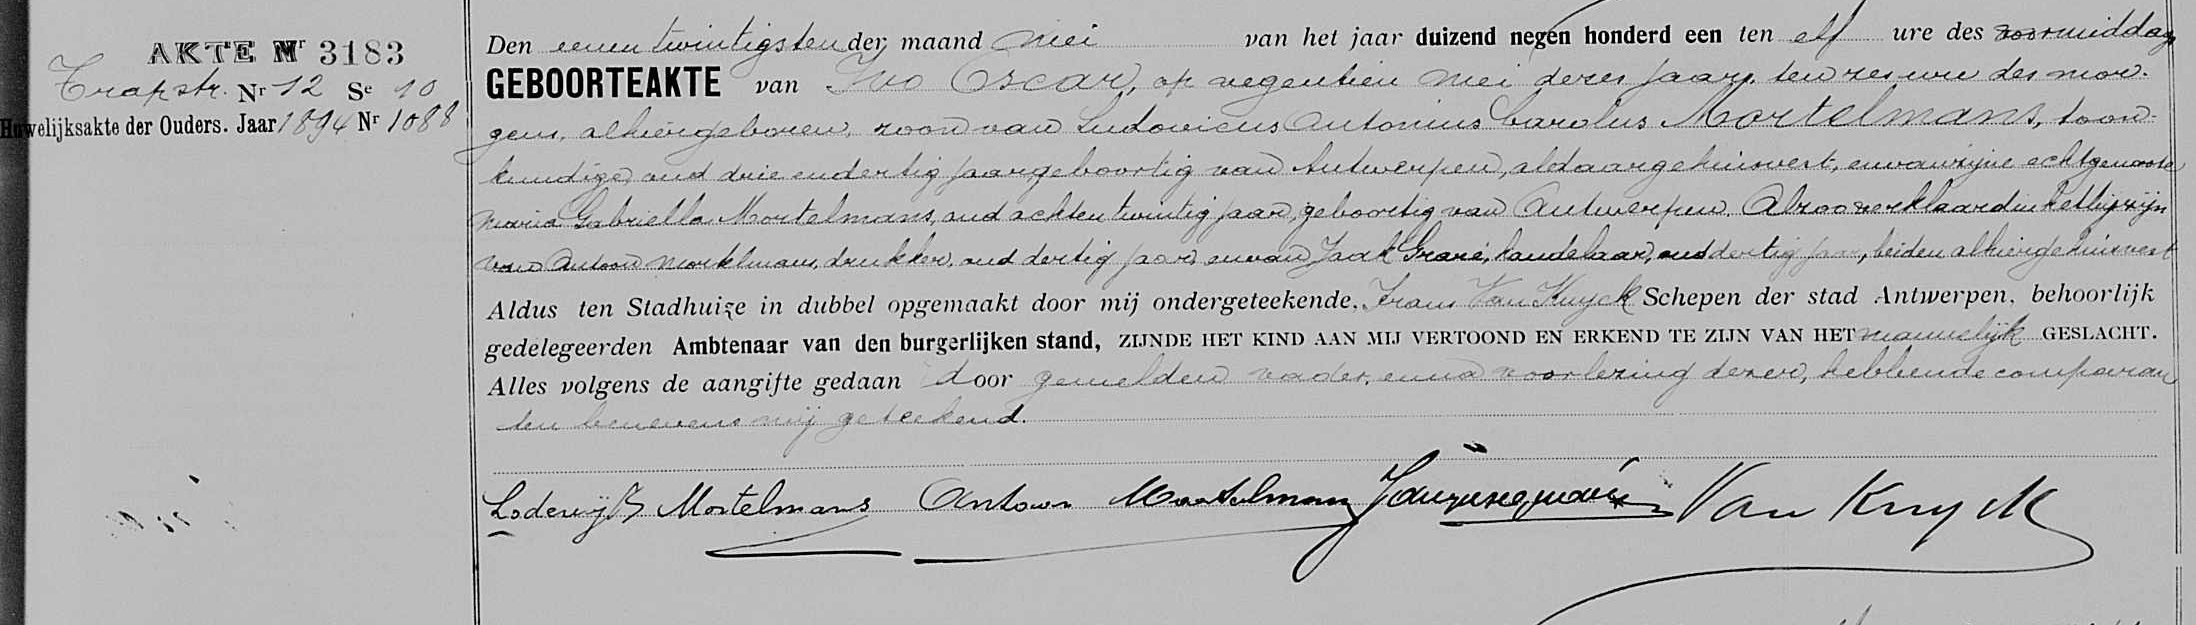 AKTE Nr 3183
Trapstr. Nr 12 Se 10
Huwelijksakte der Ouders. Jaar 1894 Nr 1088
Den eenen twintigsten der maand mei van het jaar duizend negen honderd een ten elf ure des voormiddag
GEBOORTEAKTE van Ivo Oscar, op negentien mei dezes jaars, ten zes ure des mor-
gens, alhier geboren, zoon van Ludovicus Antonius Carolus Mortelmans, toon-
kundige, oud drie en dertig jaar, geboortig van Antwerpen, aldaar gehuisvest, en van zijne echtgenoote
Maria Gabriella Mortelmans, oud acht en twintig jaar, geboortig van Antwerpen. Alzoo verklaard in het bijzijn
van Antoon Mortelmans, drukker, oud dertig jaar, en van Jaak Grané, handelaar, oud dertig jaar, beiden alhier gehuisvest
Aldus ten Stadhuize in dubbel opgemaakt door mij ondergeteekende, Frans Van Kuyck Schepen der stad Antwerpen, behoorlijk
gedelegeerden Ambtenaar van den burgerlijken stand, ZIJNDE HET KIND AAN MIJ VERTOOND EN ERKEND TE ZIJN VAN HET mannelijk GESLACHT.
Alles volgens de aangifte gedaan door gemelden vader, en na voorlezing dezer, hebbende comparan
ten benevens mij geteekend.
Lodewijk Mortelmans Antoon Mortelmans Van Kuyck